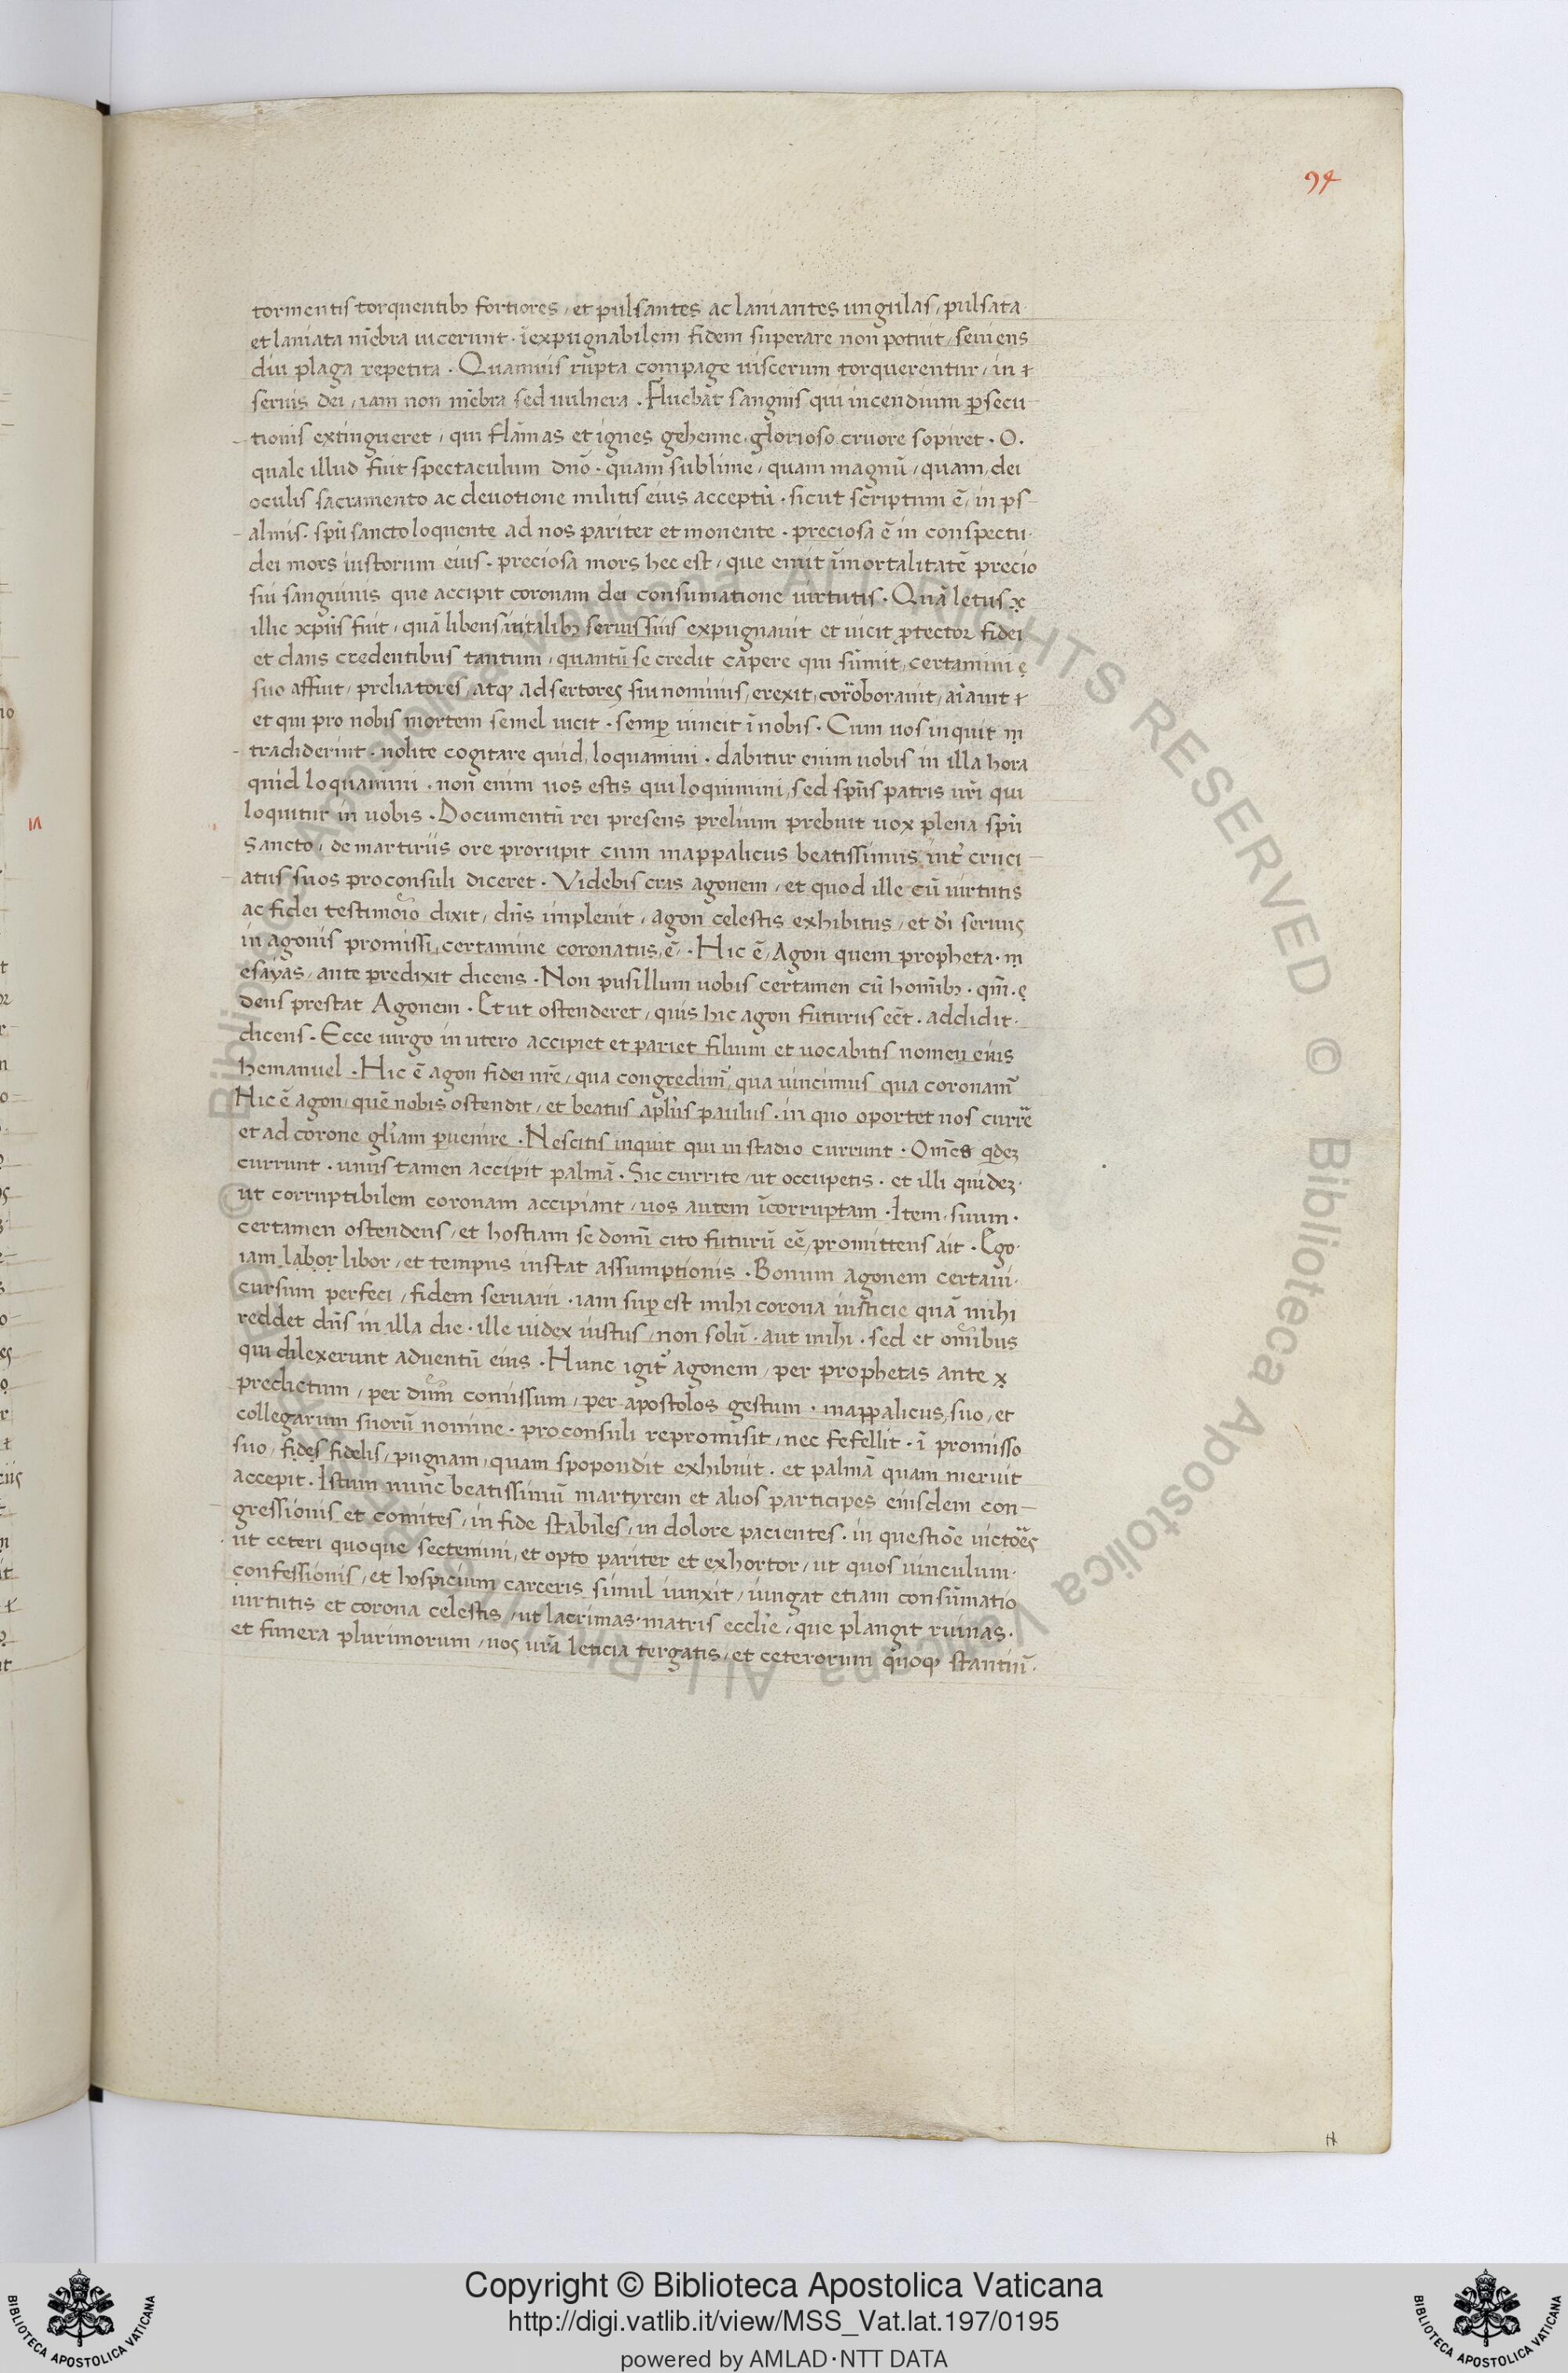 94
tormentis torquentibꝫ fortiores, et pulsantes ac laniantes ungulas, pulsata
et laniata mẽbra uicerunt. ĩexpugnabilem fidem superare non potuit, seuiens
diu plaga repetita. Quamuis rupta compage uiscerum torquerentur, in
seruis dei, iam non mẽbra sed uulnera. Fluebat sanguis qui incendium ꝑsecu-
tionis extingueret, qui flãmas et ignes gehenne, glorioso cruore sopiret. O.
quale illud fuit spectaculum dño. quam sublime, quam magnũ, quam dei
oculis sacramento ac deuotione militis eius acceptũ. sicut scriptum ẽ, in ps-
almis. spũ sancto loquente ad nos pariter et monente. preciosa ẽ in conspectu
dei mors iustorum eius. preciosa mors hec est, que emit ĩmortalitatẽ precio
sui sanguinis que accipit coronam dei consumatione uirtutis. Quã letus
illic xp̃us fuit, quã libens ĩ talibꝫ seruis suis expugnauit et uicit ꝓtector fidei
et dans credentibus tantum, quantũ se credit capere qui sumit, certamini
suo affuit, preliatores, atqꝫ adsertores sui nominis, erexit, corroborauit, aĩauit
et qui pro nobis mortem semel uicit. semꝑ uincit ĩ nobis. Cum uos inquit
tradiderint. nolite cogitare quid, loquamini. dabitur enim uobis in illa hora
quid loquamini. non enim uos estis qui loquimini, sed spũs patris uñi qui
loquitur in uobis. Documentũ rei presens prelium prebuit uox plena spũ
Sancto, de martiriis ore prorupit cum mappalicus beatissimus int̉ cruci-
atus suos proconsuli diceret. Videbis cras agonem, et quod ille cũ uirtutis
ac fidei testimoĩo dixit, dñs impleuit, agon celestis exhibitus, et dĩ seruus
in agonis promissi, certamine coronatus, ẽ. Hic ẽ, Agon quem propheta.
esayas, ante predixit dicens. Non pusillum uobis certamen cũ homĩbꝫ. qm̃.
deus prestat Agonem. Et ut ostenderet, quis hic agon futurus eẽt. addidit.
dicens. Ecce uirgo in utero accipiet et pariet filium et uocabitis nomen eius
hemanuel. Hic ẽ agon fidei nr̃e, qua congredim̉, qua uincimus qua coronam̉
Hic ẽ agon, quẽ nobis ostendit, et beatus apl̃us paulus. in quo oportet nos currẽ
et ad corone gl̃iam ꝑuenire. Nescitis inquit qui in stadio currunt. Om̃es qdeꝫ
currunt. unus tamen accipit palmã. Sic currite, ut occupetis. et illi quideꝫ.
ut corruptibilem coronam accipiant, uos autem ĩcorruptam. Item. suum.
certamen ostendens, et hostiam se domĩ cito futurũ eẽ, promittens ait. Ego.
iam labor libor, et tempus instat assumptionis. Bonum agonem certaui.
cursum perfeci, fidem seruaui. iam suꝑ est mihi corona iusticie quã mihi
reddet dñs in illa die. ille iudex iustus, non solũ. aut mihi. sed et omĩbus
qui dilexerunt aduentũ eius. Hunc igit̉ agonem, per prophetas ante
predictum, per dũm comissum, per apostolos gestum. mappalicus, suo, et
collegarum suorũ nomine. proconsuli repromisit, nec fefellit. ĩ promisso
suo, fides fidelis, pugnam, quam spopondit exhibuit. et palmã quam meruit
accepit. Istum nunc beatissimũ martyrem et alios participes eiusdem con-
gressionis et comites, in fide stabiles, in dolore pacientes. in questiõe uictoẽs
ut ceteri quoque sectemini, et opto pariter et exhortor, ut quos uinculum.
confessionis, et hospicium carceris simul iunxit, iungat etiam consũmatio
uirtutis et corona celestis, ut lacrimas. matris eccl̃ie, que plangit ruinas.
et funera plurimorum, uos ur̃a leticia tergatis, et ceterorum quoqꝫ stantiũ.
Copyright © Biblioteca Apostolica Vaticana
http://digi.vatlib.it/view/MSS_Vat.lat.197/0195
powered by AMLAD·NTT DATA
BIBLIOTECA APOSTOLICA VATICANA
BIBLIOTECA APOSTOLICA VATICANA